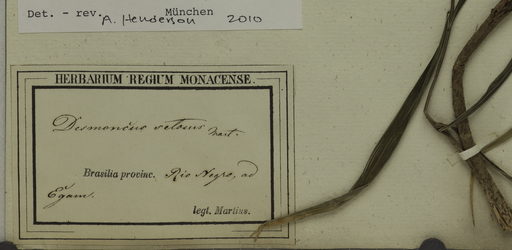 Det. - rev. A. Henderson München 2010
HERBARIUM REGIUM MONACENSE.
Desmoncus setosus Mart.
Brasilia provinc. Rio Negro, ad
Egam.
legt. Martius.